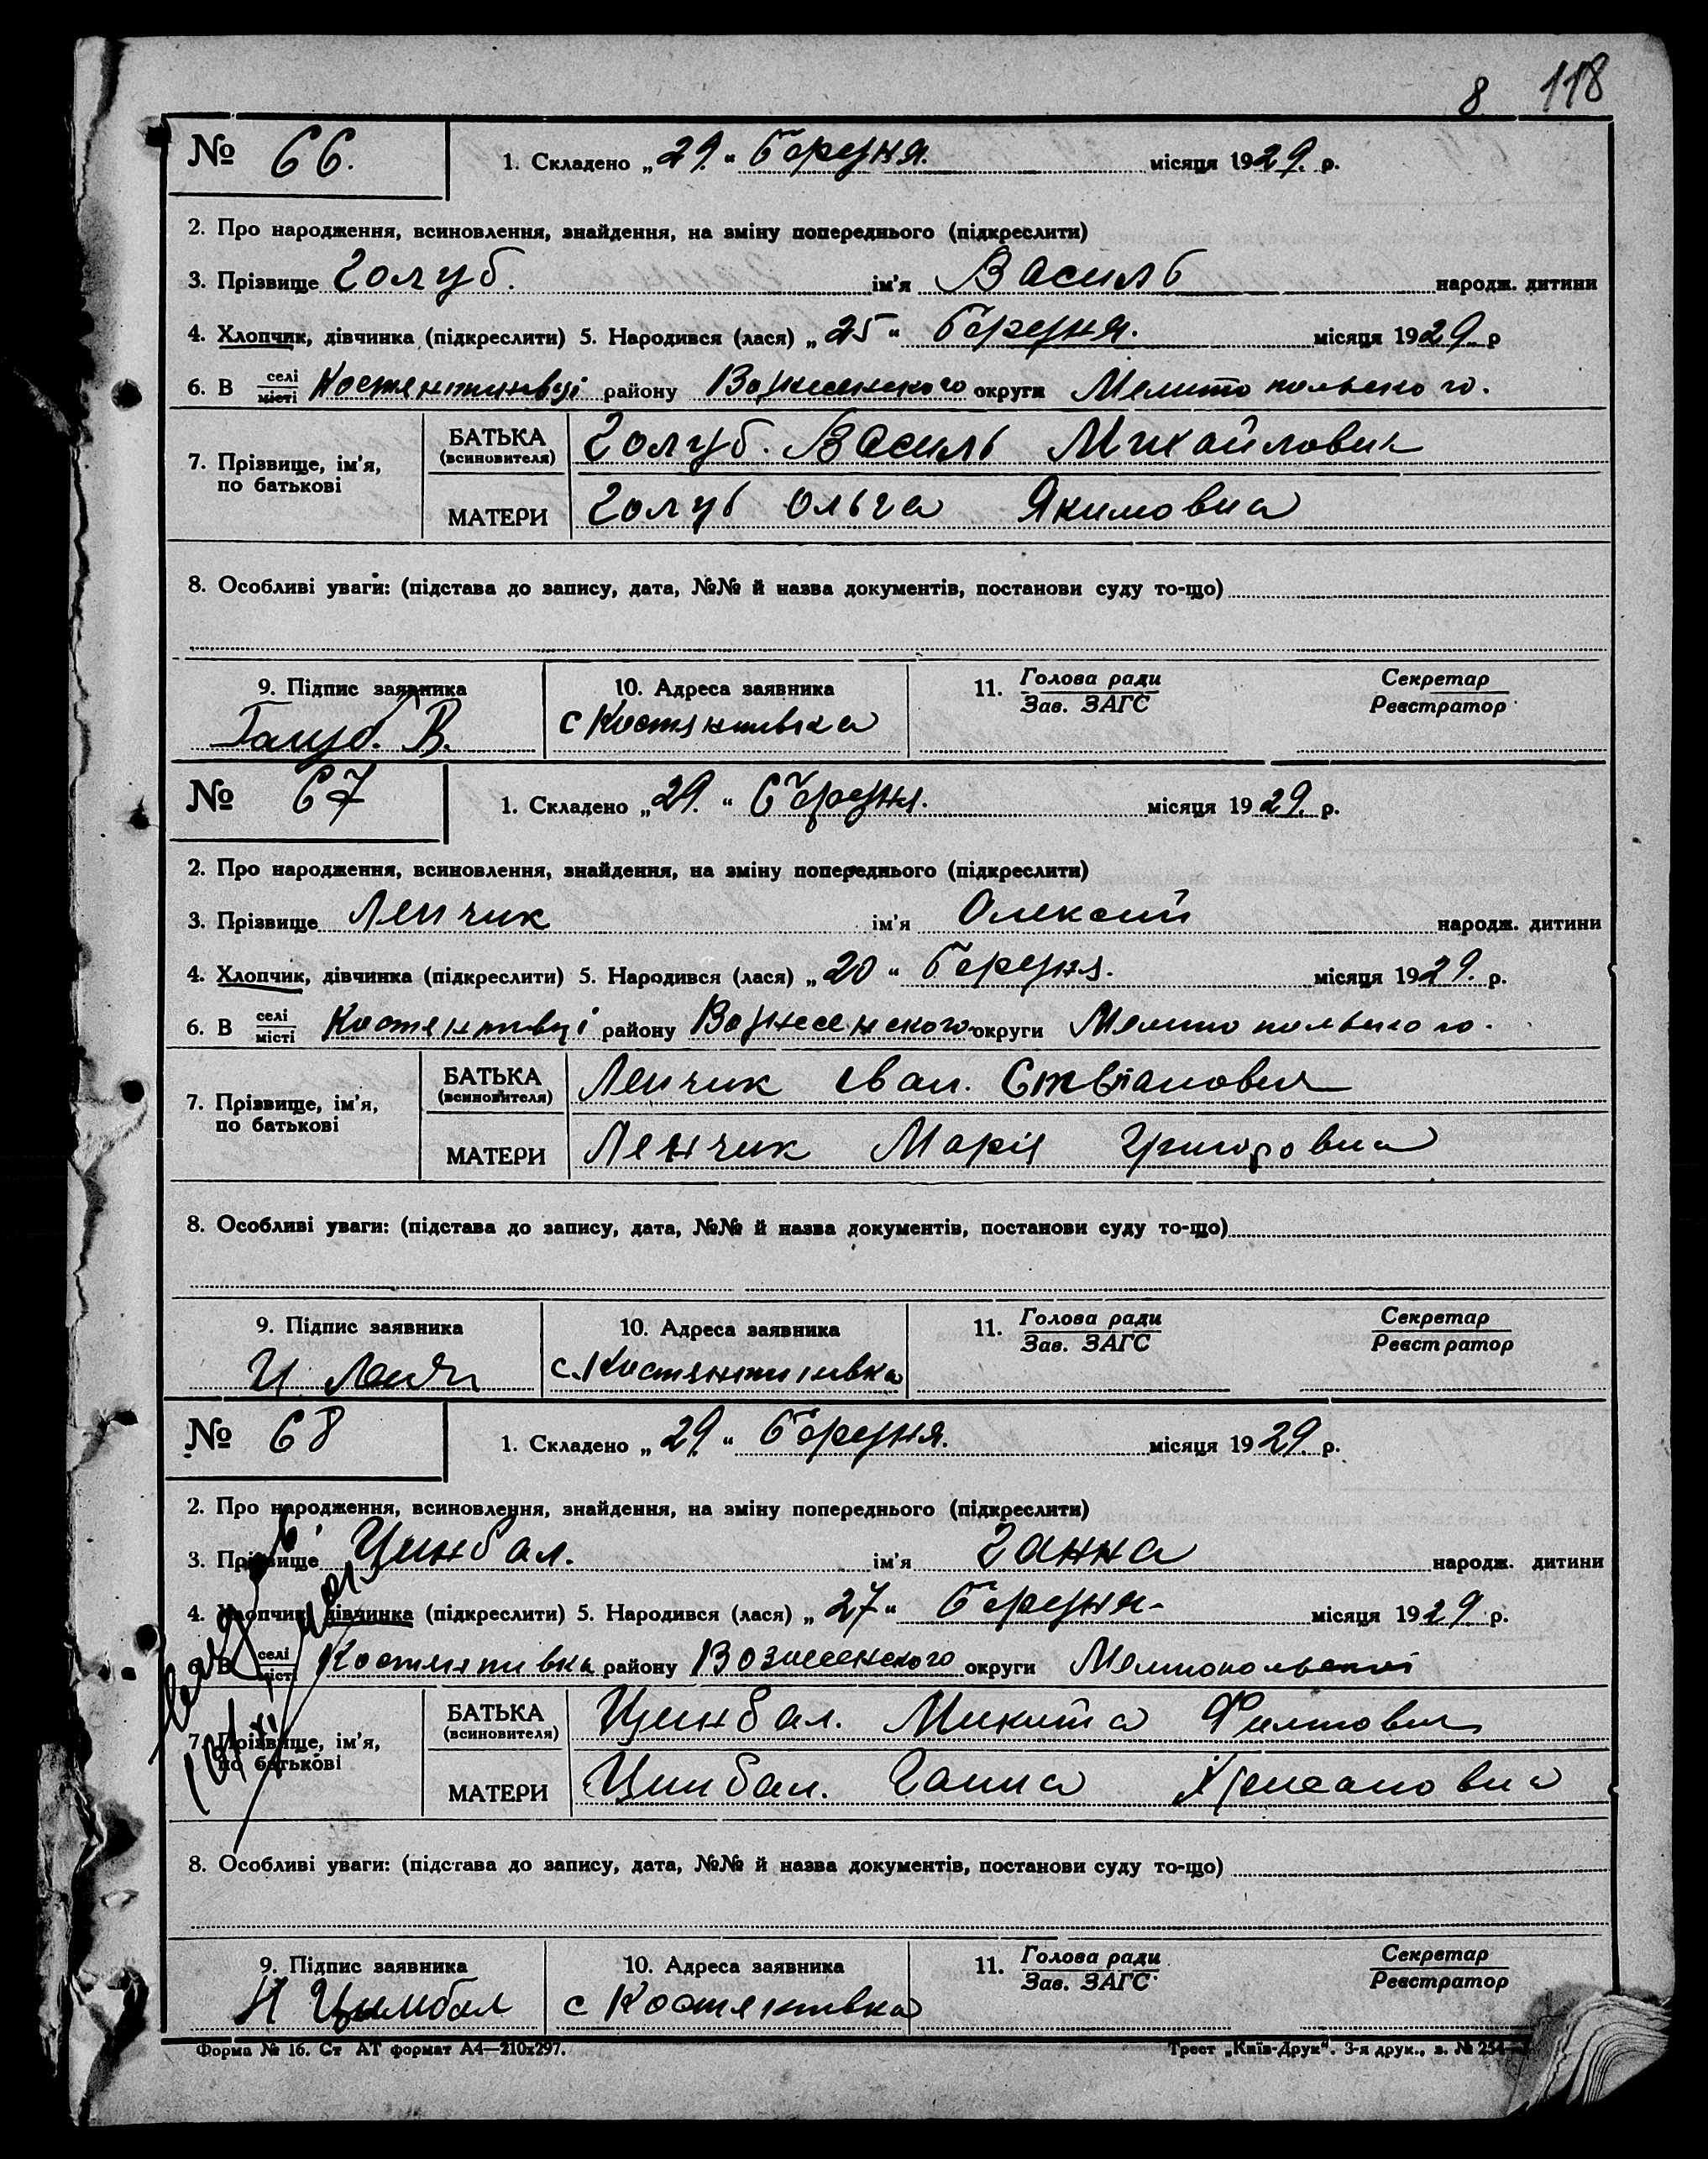 8 118
№ 66. 1. Складено „29.“ березня. місяця 1929. р.
2. Про народження, всиновлення, знайдення, на зміну попереднього (підкреслити)
3. Прізвище Голуб. ім'я Василь народж. дитини
4. Хлопчик, дівчинка (підкреслити) 5. Народився (лася) „25“ березня. місяця 1929 р
6. В селі/місті Костентинвці району Вознесенского округи Мелитопольского.
7. Прізвище, ім'я, по батькові
БАТЬКА (всиновителя) Голуб. Василь Михайлович
МАТЕРИ Голуб Ольга Якимовна
8. Особливі уваги: (підстава до запису, дата, №№ й назва документів, постанови суду то-що)
9. Підпис заявника 10. Адреса заявника 11. Голова ради/Зав. ЗАГС Секретар/Реєстратор
В. с Костянтивка
№ 67 1. Складено „29.“ березня. місяця 1929. р.
2. Про народження, всиновлення, знайдення, на зміну попереднього (підкреслити)
3. Прізвище Ленчик ім'я Олексий народж. дитини
4. Хлопчик, дівчинка (підкреслити) 5. Народився (лася) „20“ березня. місяця 1929. р.
6. В селі/місті Костентивці району Вознесенского округи Мелитопольского.
7. Прізвище, ім'я, по батькові
БАТЬКА (всиновителя) Ленчик Іван. Степанович
МАТЕРИ Ленчик Марія Григоровна
8. Особливі уваги: (підстава до запису, дата, №№ й назва документів, постанови суду то-що)
9. Підпис заявника 10. Адреса заявника 11. Голова ради/Зав. ЗАГС Секретар/Реєстратор
И. с. Костянтинивка
№ 68 1. Складено „29.“ березня. місяця 1929. р.
2. Про народження, всиновлення, знайдення, на зміну попереднього (підкреслити)
3. Прізвище Цинбал. ім'я Ганна народж. дитини
4. Хлопчик, дівчинка (підкреслити) 5. Народився (лася) „27“ березня. місяця 1929 р.
6. В селі/місті Костянтивка району Вознесенского округи
7. Прізвище, ім'я, по батькові
БАТЬКА (всиновителя) Цинбал. Микита
МАТЕРИ Цинбал. Ганна
8. Особливі уваги: (підстава до запису, дата, №№ й назва документів, постанови суду то-що)
9. Підпис заявника 10. Адреса заявника 11. Голова ради/Зав. ЗАГС Секретар/Реєстратор
Н Цымбал с Костянтивка
Форма № 16. Ст АТ формат А4—210х297. Трест „Київ-Друк“. 3-я друк., з. № 254